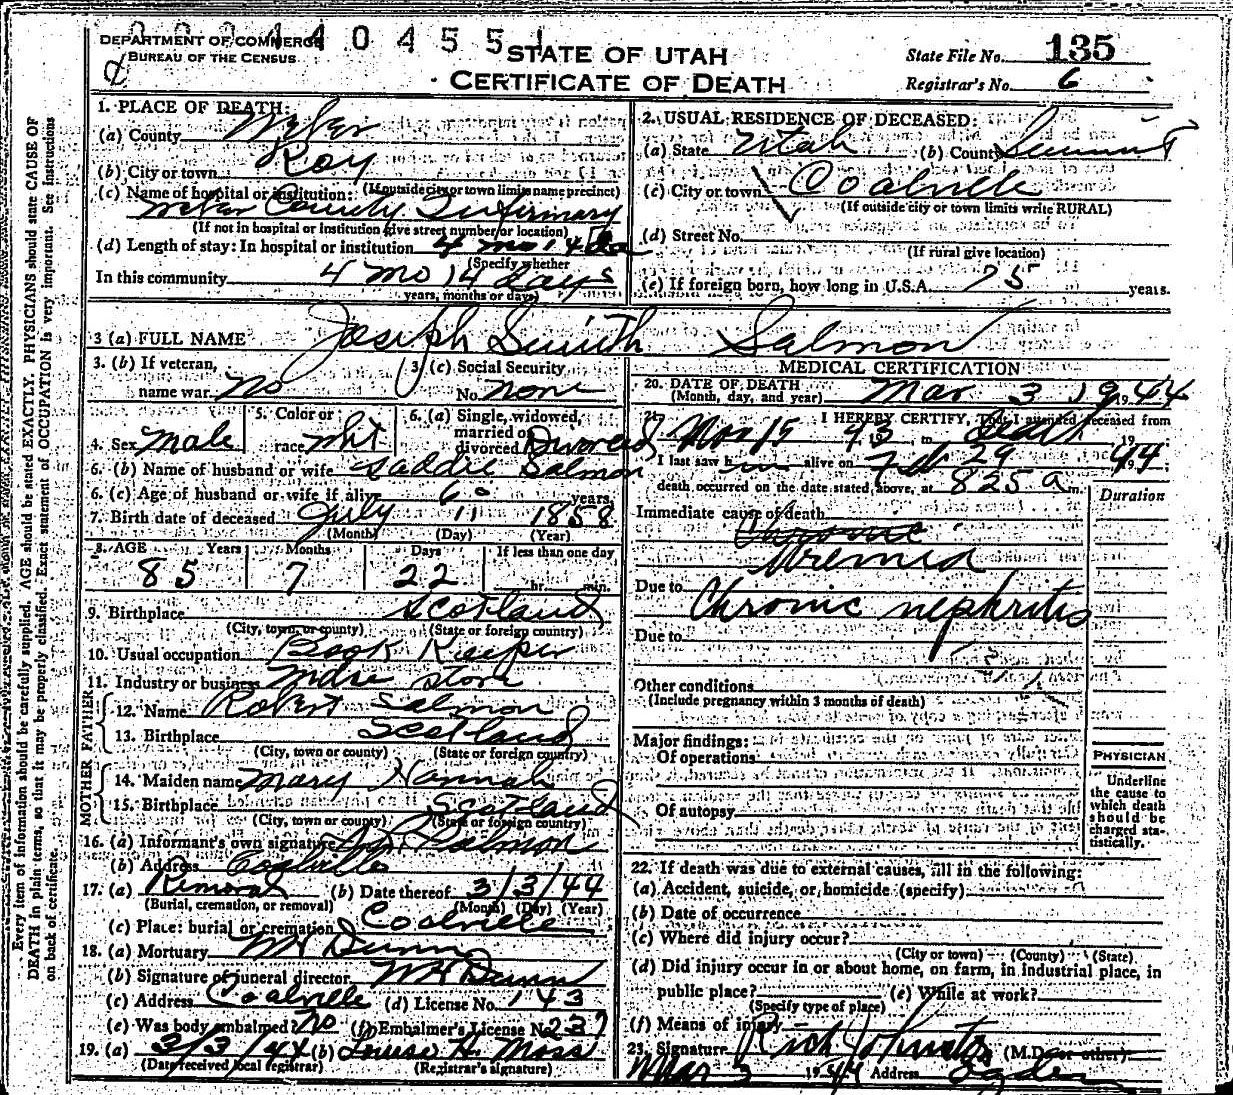 DEPARTMENT OF COMMERCE
BUREAU OF THE CENSUS
STATE OF UTAH
CERTIFICATE OF DEATH
State File No. 135
Registrar's No. 6
1. PLACE OF DEATH:
(a) County Weber
(b) City or town Roy
(If outside city or town limits name precinct)
(c) Name of hospital or institution:
Weber County Infirmary
(If not in hospital or institution give street number or location)
(d) Length of stay: In hospital or institution 4 mo 14 da
(Specify whether
In this community 4 mo 14 days
years, months or days)
2. USUAL RESIDENCE OF DECEASED:
(a) State Utah (b) County Summit
(c) City or town Coalville
(If outside city or town limits write RURAL)
(d) Street No.
(If rural give location)
(e) If foreign born, how long in U.S.A. 75 years.
3 (a) FULL NAME Joseph Smith Salmon
3. (b) If veteran, name war. No
3 (c) Social Security No. None
4. Sex Male
5. Color or race Whit
6. (a) Single, widowed, married or divorced Divorced
6. (b) Name of husband or wife Saddie Salmon
6. (c) Age of husband or wife if alive 60 years
7. Birth date of deceased July 11 1858
(Month) (Day) (Year)
8. AGE Years Months Days If less than one day
85 7 22 hr. min.
9. Birthplace Scotland
(City, town, or county) (State or foreign country)
10. Usual occupation Book Keeper
11. Industry or business Mdse store
FATHER
12. Name Robert Salmon
13. Birthplace Scotland
(City, town or county) (State or foreign country)
MOTHER
14. Maiden name Mary Hannah
15. Birthplace Scotland
(City, town or county) (State or foreign country)
16. (a) Informant's own signature Salmon
(b) Address Coalville
17. (a) Removal (b) Date thereof 3/3/44
(Burial, cremation, or removal) (Month) (Day) (Year)
(c) Place: burial or cremation Coalville
18. (a) Mortuary W H Dunn
(b) Signature of funeral director W H Dunn
(c) Address Coalville (d) License No. 143
(e) Was body embalmed? No (f) Embalmer's License No. 237
19. (a) 3/3/44 (b) Louise H. Moss
(Date received local registrar) (Registrar's signature)
MEDICAL CERTIFICATION
20. DATE OF DEATH Mar 3 1944
(Month, day, and year)
21. I HEREBY CERTIFY, That I attended deceased from
Nov 15 1943 to Death 19
I last saw him alive on Feb 29 1944
death occurred on the date stated above, at 825 a m.
Duration
Immediate cause of death
Chronic
Uremia
Due to Chronic nephritis
Due to
Other conditions
(Include pregnancy within 3 months of death)
Major findings:
Of operations
Of autopsy
PHYSICIAN
Underline the cause to which death should be charged statistically.
22. If death was due to external causes, fill in the following:
(a) Accident, suicide, or homicide (specify)
(b) Date of occurrence
(c) Where did injury occur?
(City or town) (County) (State)
(d) Did injury occur in or about home, on farm, in industrial place, in
public place? (e) While at work?
(Specify type of place)
(f) Means of injury
23. Signature Rich Johnston (M.D. or other)
Mar 3 1944 Address Ogden
Every item of information should be carefully supplied. AGE should be stated EXACTLY. PHYSICIANS should state CAUSE OF
DEATH in plain terms, so that it may be properly classified. Exact statement of OCCUPATION is very important. See Instructions
on back of certificate.